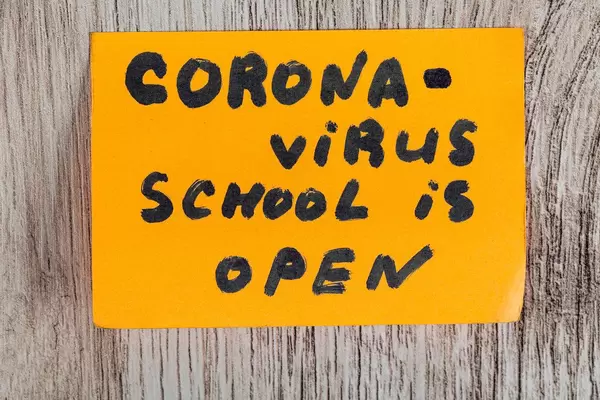 CORONA-
ViRUS
SCHOOL iS
OPEN